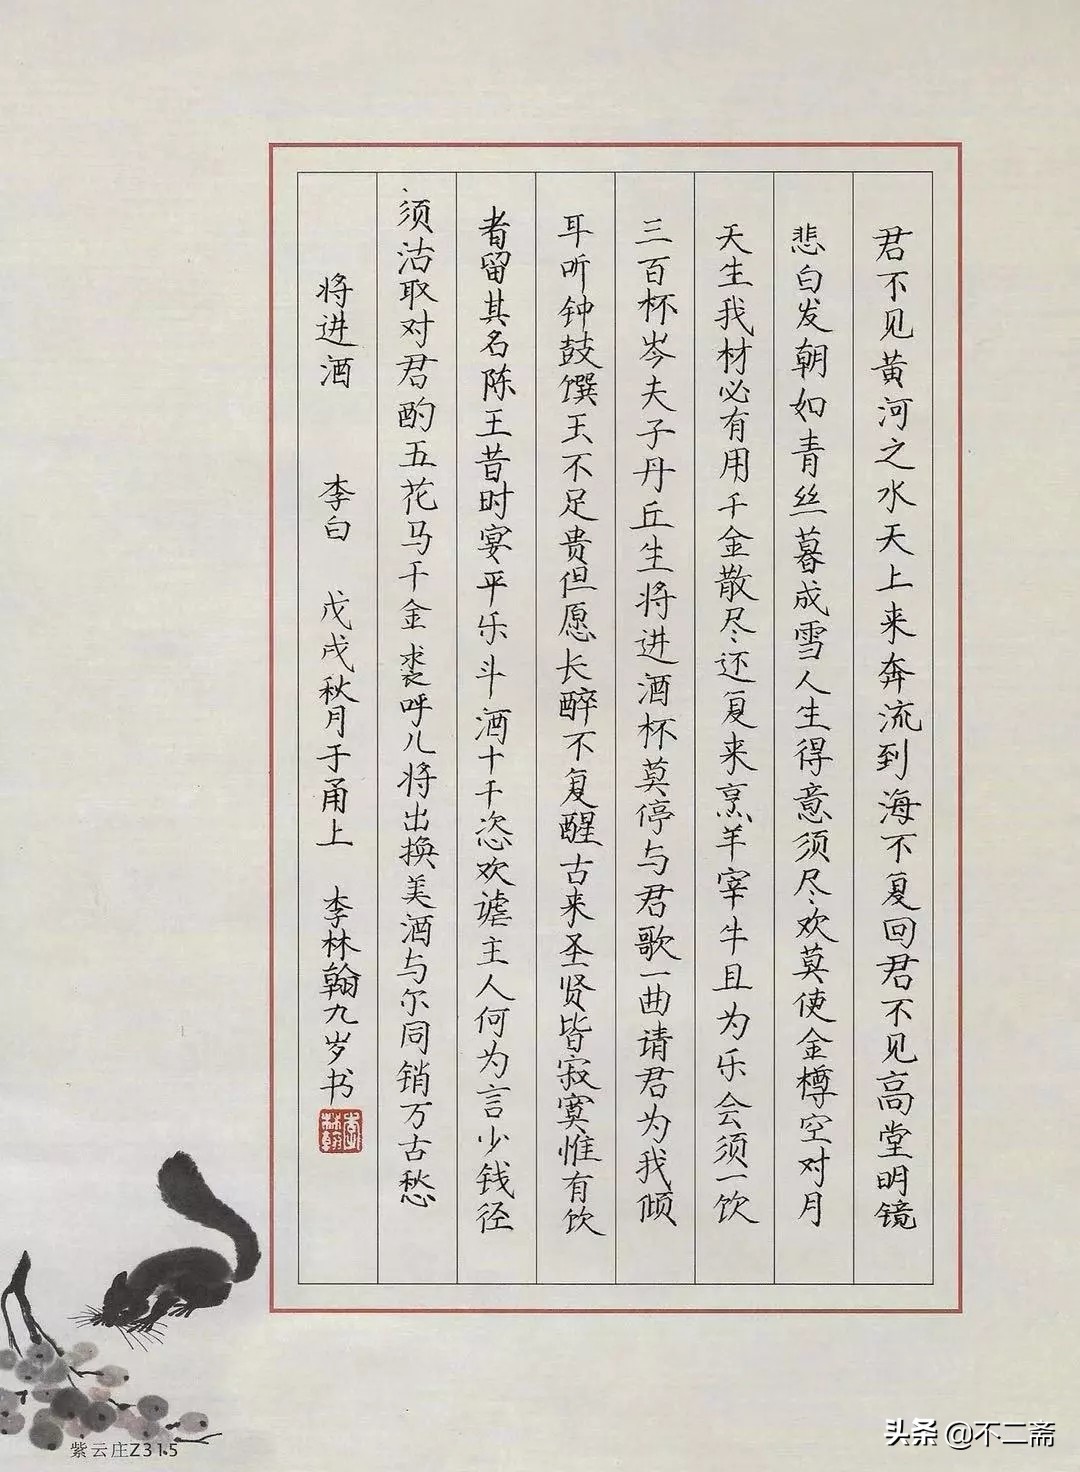 君不见黄河之水天上来奔流到海不复回君不见高堂明镜
悲白发朝如青丝暮成雪人生得意须尽欢莫使金樽空对月
天生我材必有用千金散尽还复来烹羊宰牛且为乐会须一饮
三百杯岑夫子丹丘生将进酒杯莫停与君歌一曲请君为我倾
耳听钟鼓馔玉不足贵但愿长醉不复醒古来圣贤皆寂寞惟有饮
者留其名陈王昔时宴平乐斗酒十千恣欢谑主人何为言少钱径
须沽取对君酌五花马千金裘呼儿将出换美酒与尔同销万古愁
将进酒 李白 戊戌秋月于甬上 李林翰九岁书
李林翰
紫云庄Z315
头条 @不二斋